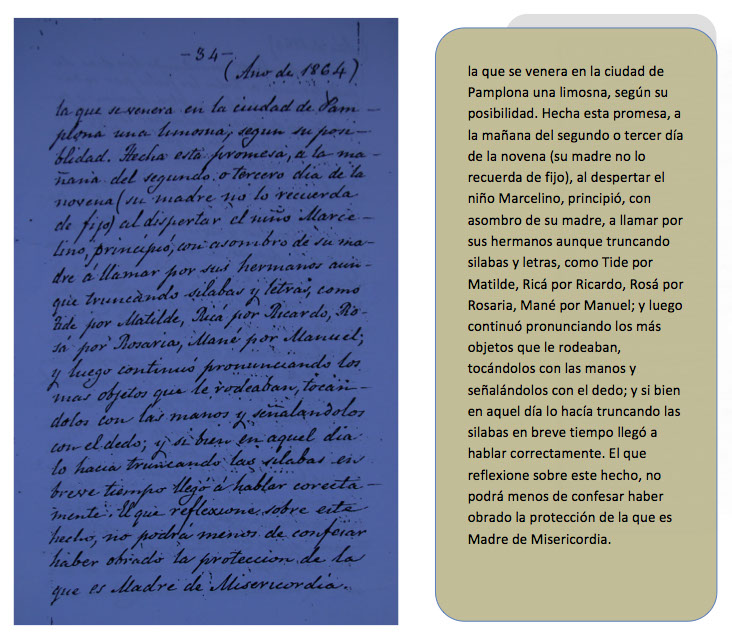 -34-
(Año de 1864)
la que se venera en la ciudad de Pam-
plona una limosna, segun su posi-
blidad. Hecha esta promesa, a la ma-
ñana del segundo o tercero dia de la
novena (su madre no lo recuerda
de fijo) al dispertar el niño Marce-
lino, principió, con asombro de su ma-
dre á llamar por sus hermanos aun-
que truncando silabas y letras, como
Tide por Matilde, Ricá por Ricardo, Ro-
sá por Rosaria, Mané por Manuel;
y luego continuó pronunciando los
mas objetos que le rodeaban, tocán-
dolos con las manos y señalandolos
con el dedo; y si bien en aquel dia
lo hacia truncando las silabas en
breve tiempo llegó á hablar corecta-
mente. El que reflexione sobre este
hecho, no podrá menos de confesar
haber obrado la proteccion de la
que es Madre de Misericordia.
la que se venera en la ciudad de
Pamplona una limosna, según su
posibilidad. Hecha esta promesa, a
la mañana del segundo o tercer día
de la novena (su madre no lo
recuerda de fijo), al despertar el
niño Marcelino, principió, con
asombro de su madre, a llamar por
sus hermanos aunque truncando
silabas y letras, como Tide por
Matilde, Ricá por Ricardo, Rosá por
Rosaria, Mané por Manuel; y luego
continuó pronunciando los más
objetos que le rodeaban,
tocándolos con las manos y
señalándolos con el dedo; y si bien
en aquel día lo hacía truncando las
silabas en breve tiempo llegó a
hablar correctamente. El que
reflexione sobre este hecho, no
podrá menos de confesar haber
obrado la protección de la que es
Madre de Misericordia.